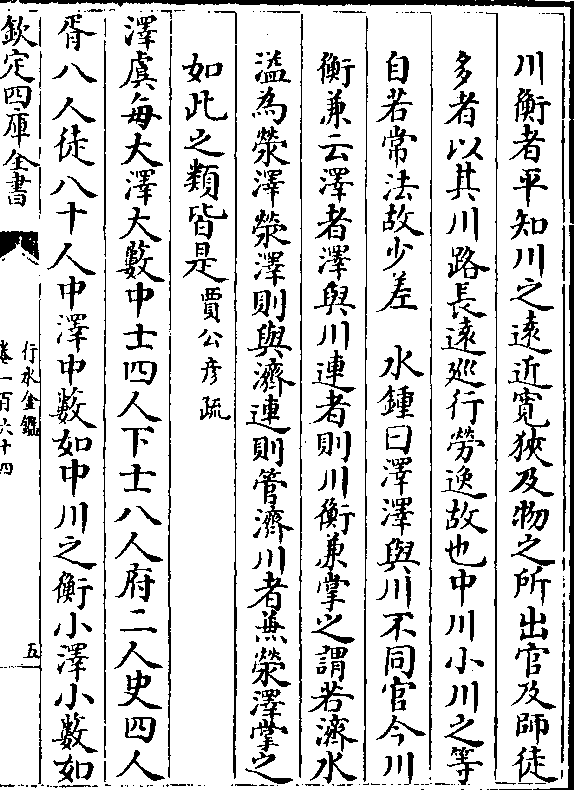 川衡者平知川之遠近寛狹及物之所出官及師徒
多者以其川路長遠巡行勞逸故也中川小川之等
自若常法故少差　水鍾曰澤澤與川不同官今川
衡兼云澤者澤與川連者則川衡兼掌之謂若濟水
溢為滎澤滎澤則與濟連則管濟川者兼滎澤掌之
如此之類皆是賈公彦疏
澤虞每大澤大藪中士四人下士八人府二人史四人
胥八人徒八十人中澤中藪如中川之衡小澤小藪如
欽定四庫全書
行水金鑑
卷一百六十四
五